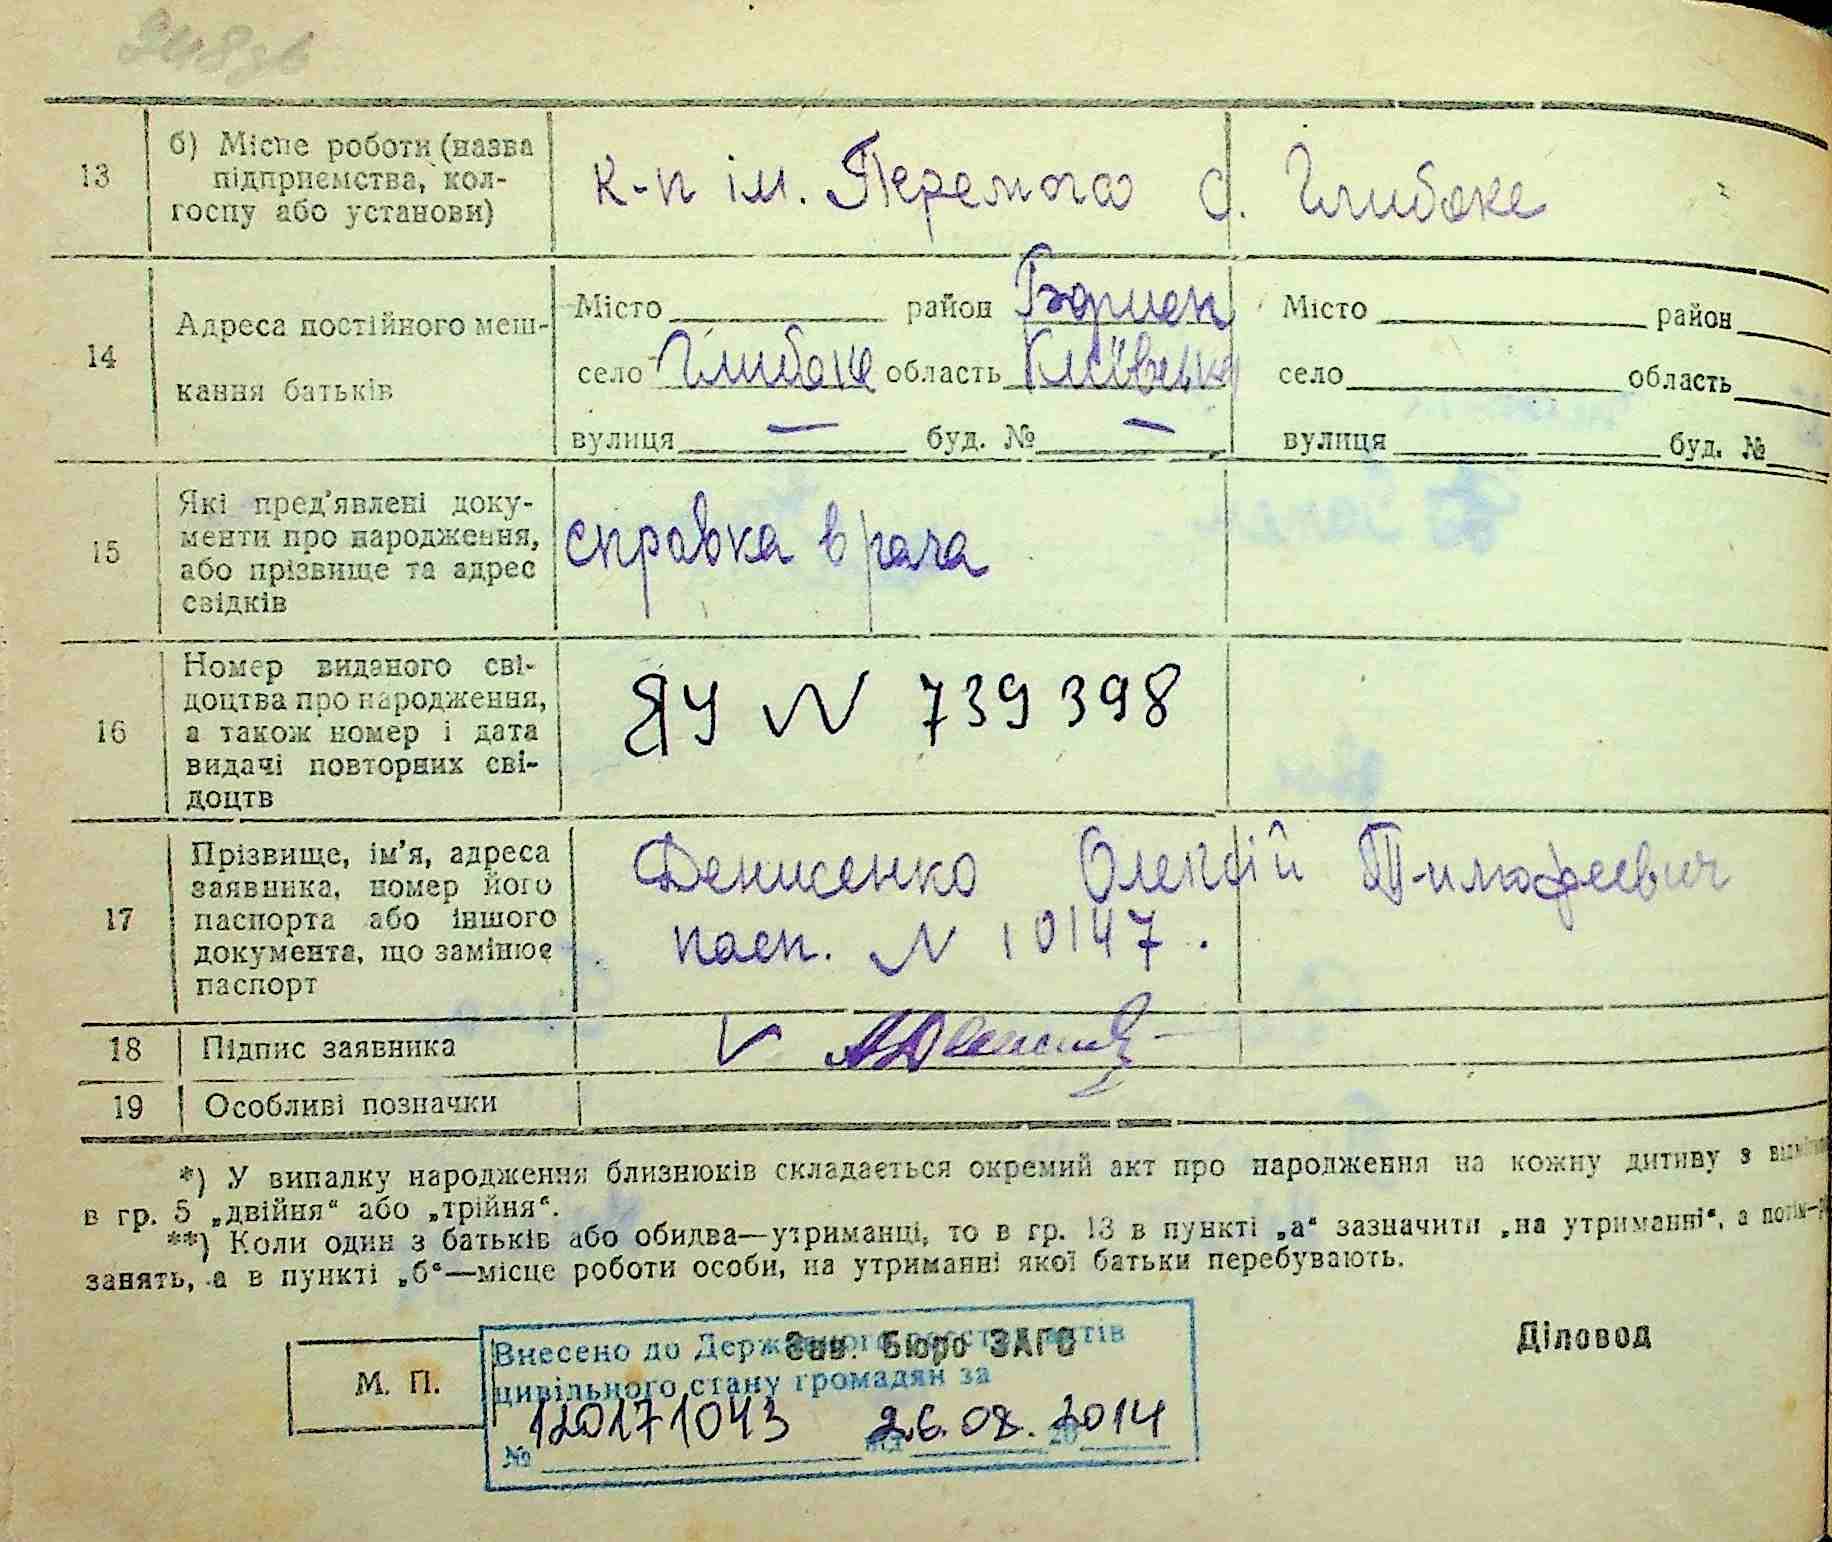 13 б) Місце роботи (назва підприємства, колгоспу або установи)
к-п ім. Перемога с. Глибоке
14 Адреса постійного мешкання батьків
Місто район Борисп
село Глибоке область Київська
вулиця — буд. № —
Місто район
село область
вулиця буд. №
15 Які пред'явлені документи про народження, або прізвище та адрес свідків
справка врача
16 Номер виданого свідоцтва про народження, а також номер і дата видачі повторних свідоцтв
ЯУ N 739398
17 Прізвище, ім'я, адреса заявника, номер його паспорта або іншого документа, що замінює паспорт
Денисенко Олексій Тимофеевич
пасп. N 10147.
18 Підпис заявника
19 Особливі позначки
*) У випадку народження близнюків складається окремий акт про народження на кожну дитину з
в гр. 5 „двійня“ або „трійня“.
**) Коли один з батьків або обидва—утриманці, то в гр. 13 в пункті „а“ зазначити „на утриманні“, а потім
занять, а в пункті „б“—місце роботи особи, на утриманні якої батьки перебувають.
М. П.
Зав. Бюро ЗАГС
Діловод
Внесено до Державного реєстру актів
цивільного стану громадян за
№ 120171043 від 26.08.2014